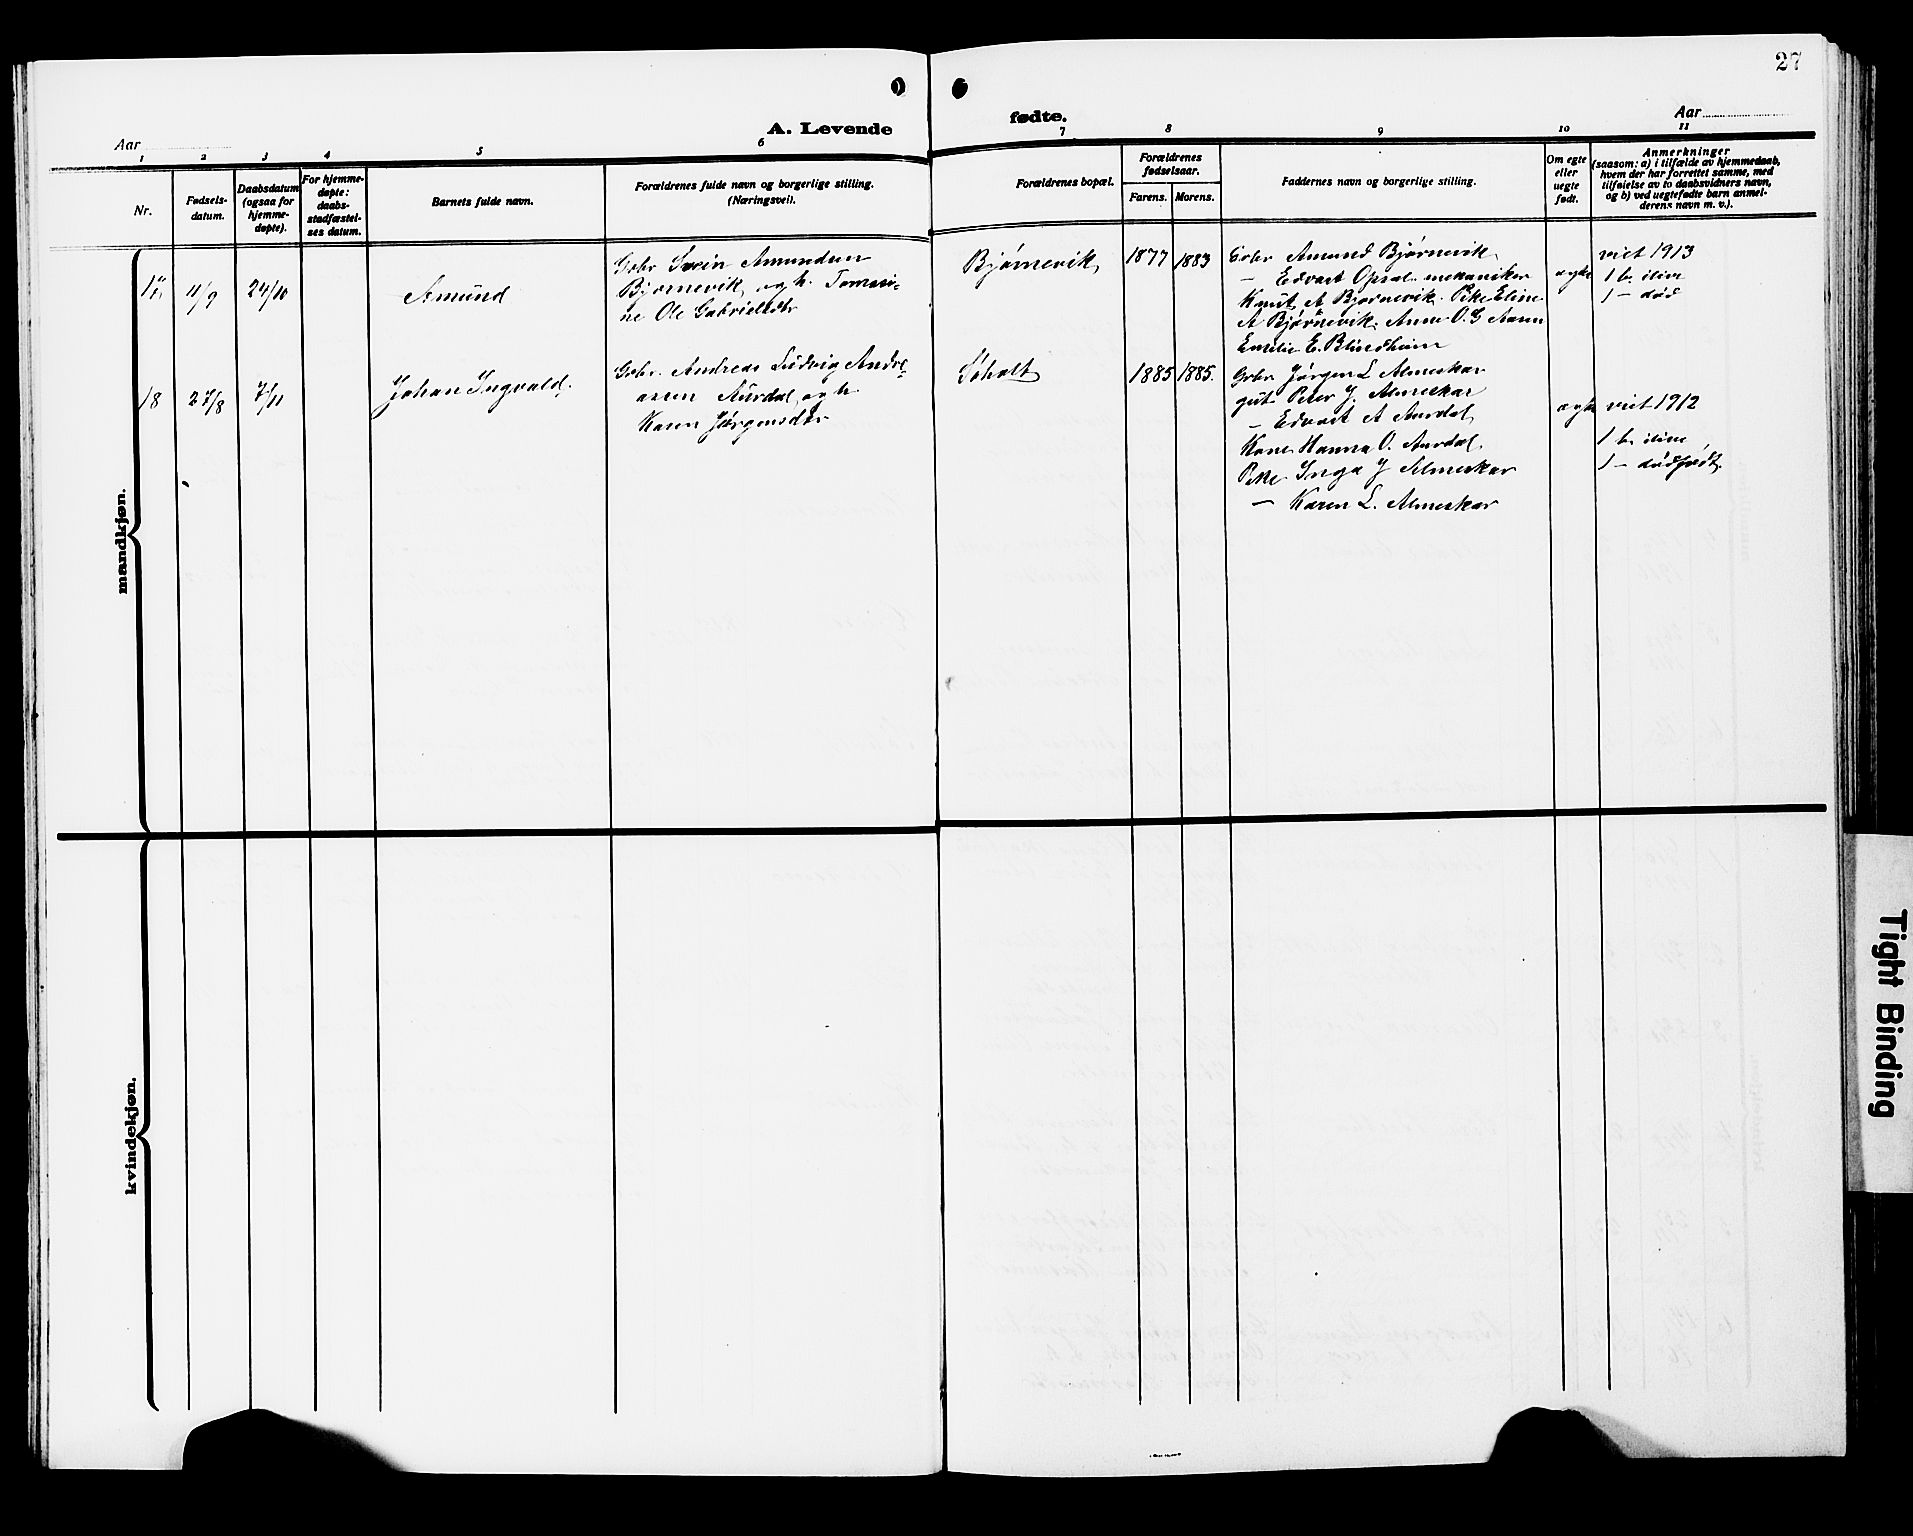 27
A. Levende fødte.
Aar
Aar
1 2 3 4 5 6 7 8 9 10 11
Nr.
Fødsels-
datum.
Daabsdatum
(ogsaa for
hjemme-
døpte).
For hjemme-
døpte:
daabs-
stadfæstel-
ses datum.
Barnets fulde navn.
Forældrenes fulde navn og borgerlige stilling.
(Næringsvei).
Forældrenes bopæl.
Forældrenes
fødselsaar.
Farens. Morens.
Faddernes navn og borgerlige stilling.
Om egte
eller
uegte
født.
Anmerkninger
(saasom: a) i tilfælde av hjemmedaab,
hvem der har forrettet samme, med
tilføielse av to daabsvidners navn,
og b) ved uegtefødte barn anmel-
derens navn m. v.).
mandkjøn.
11/9
24/10
Amund
Gbr Svein Amundsen
Bjørnevik, og h. Tomasi-
ne Ole Gabrielsdtr
Bjørnevik
1877 1883
Gbr Amund Bjørnevik
— Edvart Opsal mekaniker
Knut A Bjørnevik. Pike Eline
A Bjørnevik. Anne O. G Aasen
Emilie E. Blindheim
ægte
viet 1913
1 b. ilive
1 — død
18
27/8
7/11
Johan Ingvald.
Gbr. Andreas Ludvig Andre-
asen Aurdal, og h
Karen Jørgensdtr
Søholt
1885 1885.
Gbr Jørgen L Almeskar
gut Peter J. Almeskar
— Edvart A Aurdal,
Kone Hanna O. Aurdal,
Pike Inga J Almeskar
— Karen L. Almeskar
ægte
viet 1912
1 b. ilive,
1 — dødfødt.
kvindekjøn.
Tight Binding